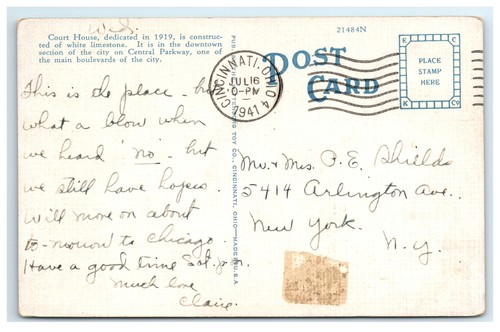 Wed.
Court House, dedicated in 1919, is construc-
ted of white limestone. It is in the downtown
section of the city on Central Parkway, one of
the main boulevards of the city.
21484N
POST
CARD
PLACE
STAMP
HERE
K
K
Co
CINCINNATI, OHIO 4
JUL 16
0-PM
1941
This is the place - but
what a blow when
we heard "no" - but
we still have hopes.
Will move on about
to-morrow to Chicago.
Have a good time Sat. p.m.
Much love
Claire.
Mr. & Mrs. P. E. Shields
5414 Arlington Ave.
New York.
N.Y.
CINCINNATI, OHIO—MADE IN U.S.A.